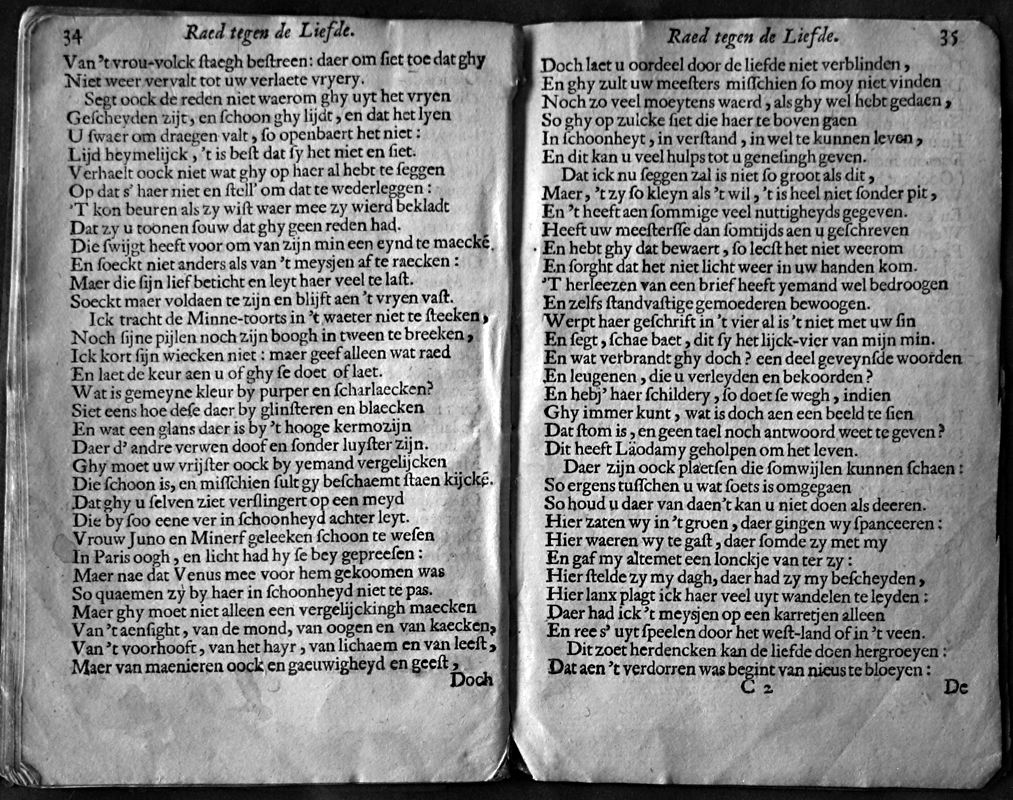 34
Raed tegen de Liefde.
Van 't vrou-volck ſtaegh beſtreen: daer om ſiet toe dat ghy
Niet weer vervalt tot uw verlaete vryery.
Segt oock de reden niet waerom ghy uyt het vryen
Geſcheyden zijt, en ſchoon ghy lijdt, en dat het lyen
U ſwaer om draegen valt, ſo openbaert het niet:
Lijd heymelijck, 't is beſt dat ſy het niet en ſiet.
Verhaelt oock niet wat ghy op haer al hebt te ſeggen
Op dat s' haer niet en ſtell' om dat te wederleggen:
'T kon beuren als zy wiſt waer mee zy wierd bekladt
Dat zy u toonen ſouw dat ghy geen reden had.
Die ſwijgt heeft voor om van zijn min een eynd te maecké.
En ſoeckt niet anders als van 't meysjen af te raecken:
Maer die ſijn lief beticht en leyt haer veel te laſt.
Soeckt maer voldaen te zijn en blijft aen 't vryen vaſt.
Ick tracht de Minne-toorts in 't waeter niet te ſteeken,
Noch ſijne pijlen noch zijn boogh in tween te breeken,
Ick kort ſijn wiecken niet: maer geef alleen wat raed
En laet de keur aen u of ghy ſe doet of laet.
Wat is gemeyne kleur by purper en ſcharlaecken?
Siet eens hoe deſe daer by glinſteren en blaecken
En wat een glans daer is by 't hooge kermozijn
Daer d' andre verwen doof en ſonder luyſter zijn.
Ghy moet uw vrijſter oock by yemand vergelijcken
Die ſchoon is, en miſſchien ſult gy beſchaemt ſtaen kijcké.
Dat ghy u ſelven ziet verſlingert op een meyd
Die by ſoo eene ver in ſchoonheyd achter leyt.
Vrouw Juno en Minerf geleeken ſchoon te weſen
In Paris oogh, en licht had hy ſe bey gepreeſen:
Maer nae dat Venus mee voor hem gekoomen was
So quaemen zy by haer in ſchoonheyd niet te pas.
Maer ghy moet niet alleen een vergelijckingh maecken
Van 't aenſight, van de mond, van oogen en van kaecken,
Van 't voorhooft, van het hayr, van lichaem en van leeſt,
Maer van maenieren oock en gaeuwigheyd en geeſt,
Doch
Raed tegen de Liefde.
35
Doch laet u oordeel door de liefde niet verblinden,
En ghy zult uw meeſters miſſchien ſo moy niet vinden
Noch zo veel moeytens waerd, als ghy wel hebt gedaen,
So ghy op zulcke ſiet die haer te boven gaen
In ſchoonheyt, in verſtand, in wel te kunnen leven,
En dit kan u veel hulps tot u geneſingh geven.
Dat ick nu ſeggen zal is niet ſo groot als dit,
Maer, 't zy ſo kleyn als 't wil, 't is heel niet ſonder pit,
En 't heeft aen ſommige veel nuttigheyds gegeven.
Heeft uw meeſterſſe dan ſomtijds aen u geſchreven
En hebt ghy dat bewaert, ſo leeſt het niet weerom
En ſorght dat het niet licht weer in uw handen kom.
'T herleezen van een brief heeft yemand wel bedroogen
En zelfs ſtandvaſtige gemoederen bewoogen.
Werpt haer geſchrift in 't vier al is 't niet met uw ſin
En ſegt, ſchae baet, dit ſy het lijck-vier van mijn min.
En wat verbrandt ghy doch? een deel geveynſde woorden
En leugenen, die u verleyden en bekoorden?
En hebj' haer ſchildery, ſo doet ſe wegh, indien
Ghy immer kunt, wat is doch aen een beeld te ſien
Dat ſtom is, en geen tael noch antwoord weet te geven?
Dit heeft Läodamy geholpen om het leven.
Daer zijn oock plaetſen die ſomwijlen kunnen ſchaen:
So ergens tuſſchen u wat ſoets is omgegaen
So houd u daer van daen't kan u niet doen als deeren.
Hier zaten wy in 't groen, daer gingen wy ſpanceeren:
Hier waeren wy te gaſt, daer ſomde zy met my
En gaf my altemet een lonckje van ter zy:
Hier ſtelde zy my dagh, daer had zy my beſcheyden,
Hier lanx plagt ick haer veel uyt wandelen te leyden:
Daer had ick 't meysjen op een karretjen alleen
En ree s' uyt ſpeelen door het weſt-land of in 't veen.
Dit zoet herdencken kan de liefde doen hergroeyen:
Dat aen 't verdorren was begint van nieus te bloeyen:
C 2
De